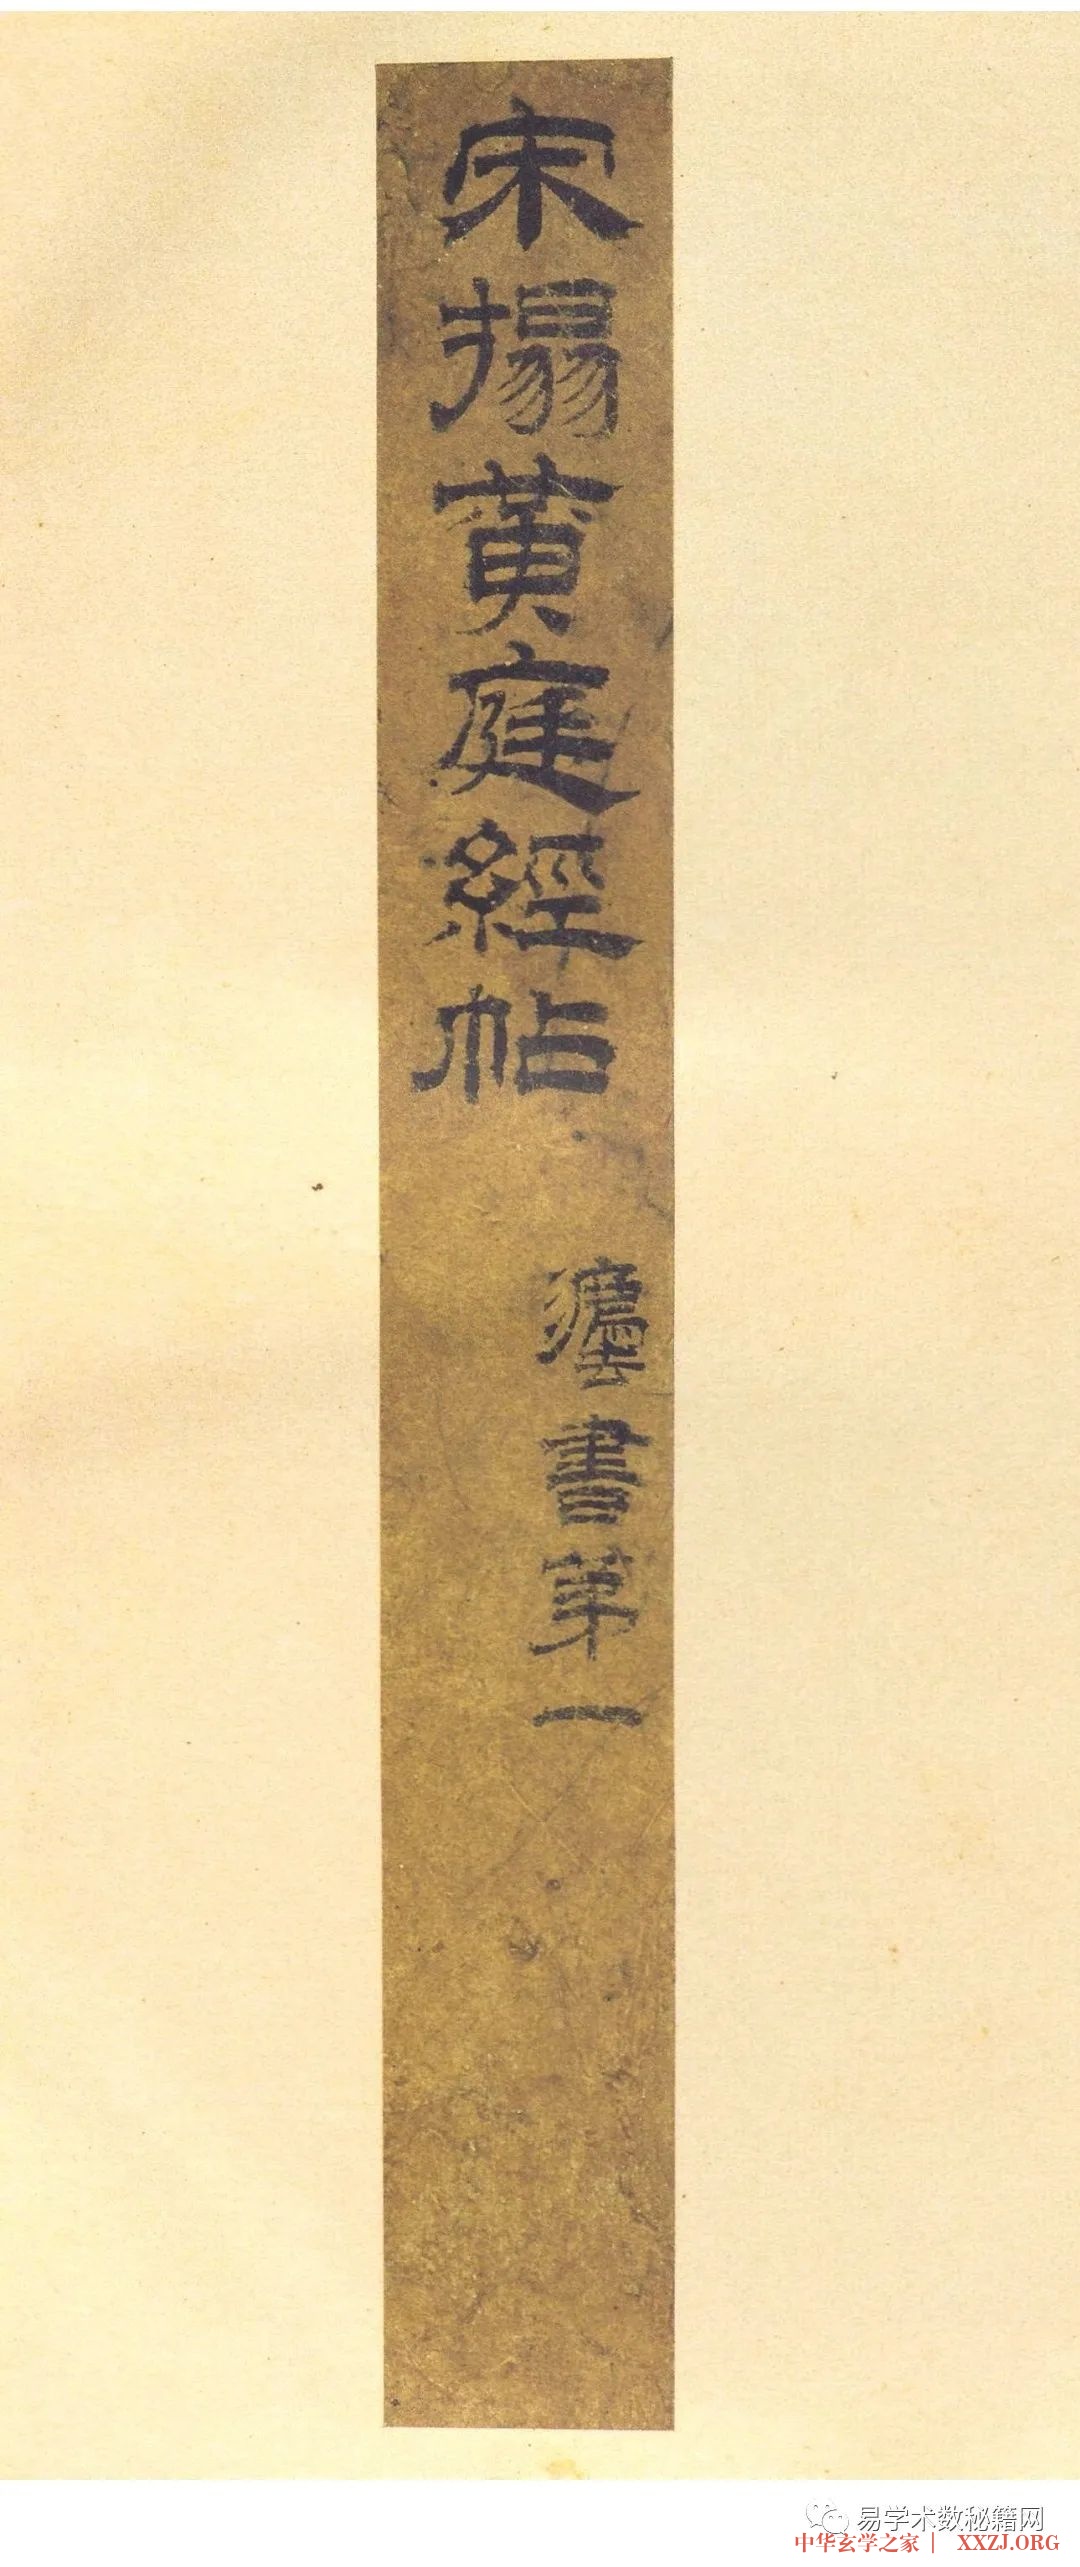 宋搨黄庭經帖
書苐一
易学术数秘籍网
中华玄学之家｜ XXZJ.ORG